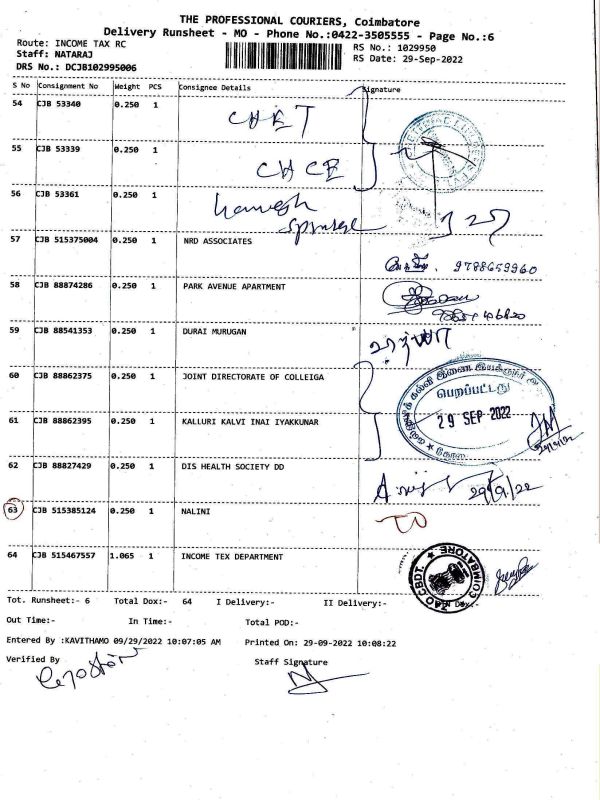 THE PROFESSIONAL COURIERS, Coimbatore
Delivery Runsheet - MO - Phone No.:0422-3505555 - Page No.:6
Route: INCOME TAX RC
RS No.: 1029950
Staff: NATARAJ
RS Date: 29-Sep-2022
DRS No.: DCJB102995006
S No Consignment No Weight PCS Consignee Details Signature
54 CJB 53340 0.250 1
55 CJB 53339 0.250 1
56 CJB 53361 0.250 1
57 CJB 515375004 0.250 1 NRD ASSOCIATES
9788659960
58 CJB 88874286 0.250 1 PARK AVENUE APARTMENT
59 CJB 88541353 0.250 1 DURAI MURUGAN
60 CJB 88862375 0.250 1 JOINT DIRECTORATE OF COLLEIGA
பெறப்பட்டது
29 SEP 2022
61 CJB 88862395 0.250 1 KALLURI KALVI INAI IYAKKUNAR
62 CJB 88827429 0.250 1 DIS HEALTH SOCIETY DD
29/9/22
63 CJB 515385124 0.250 1 NALINI
64 CJB 515467557 1.065 1 INCOME TEX DEPARTMENT
COIMBATORE
Tot. Runsheet:- 6 Total Dox:- 64 I Delivery:- II Delivery:-
Out Time:- In Time:- Total POD:-
Entered By :KAVITHAMO 09/29/2022 10:07:05 AM Printed On: 29-09-2022 10:08:22
Verified By Staff Signature